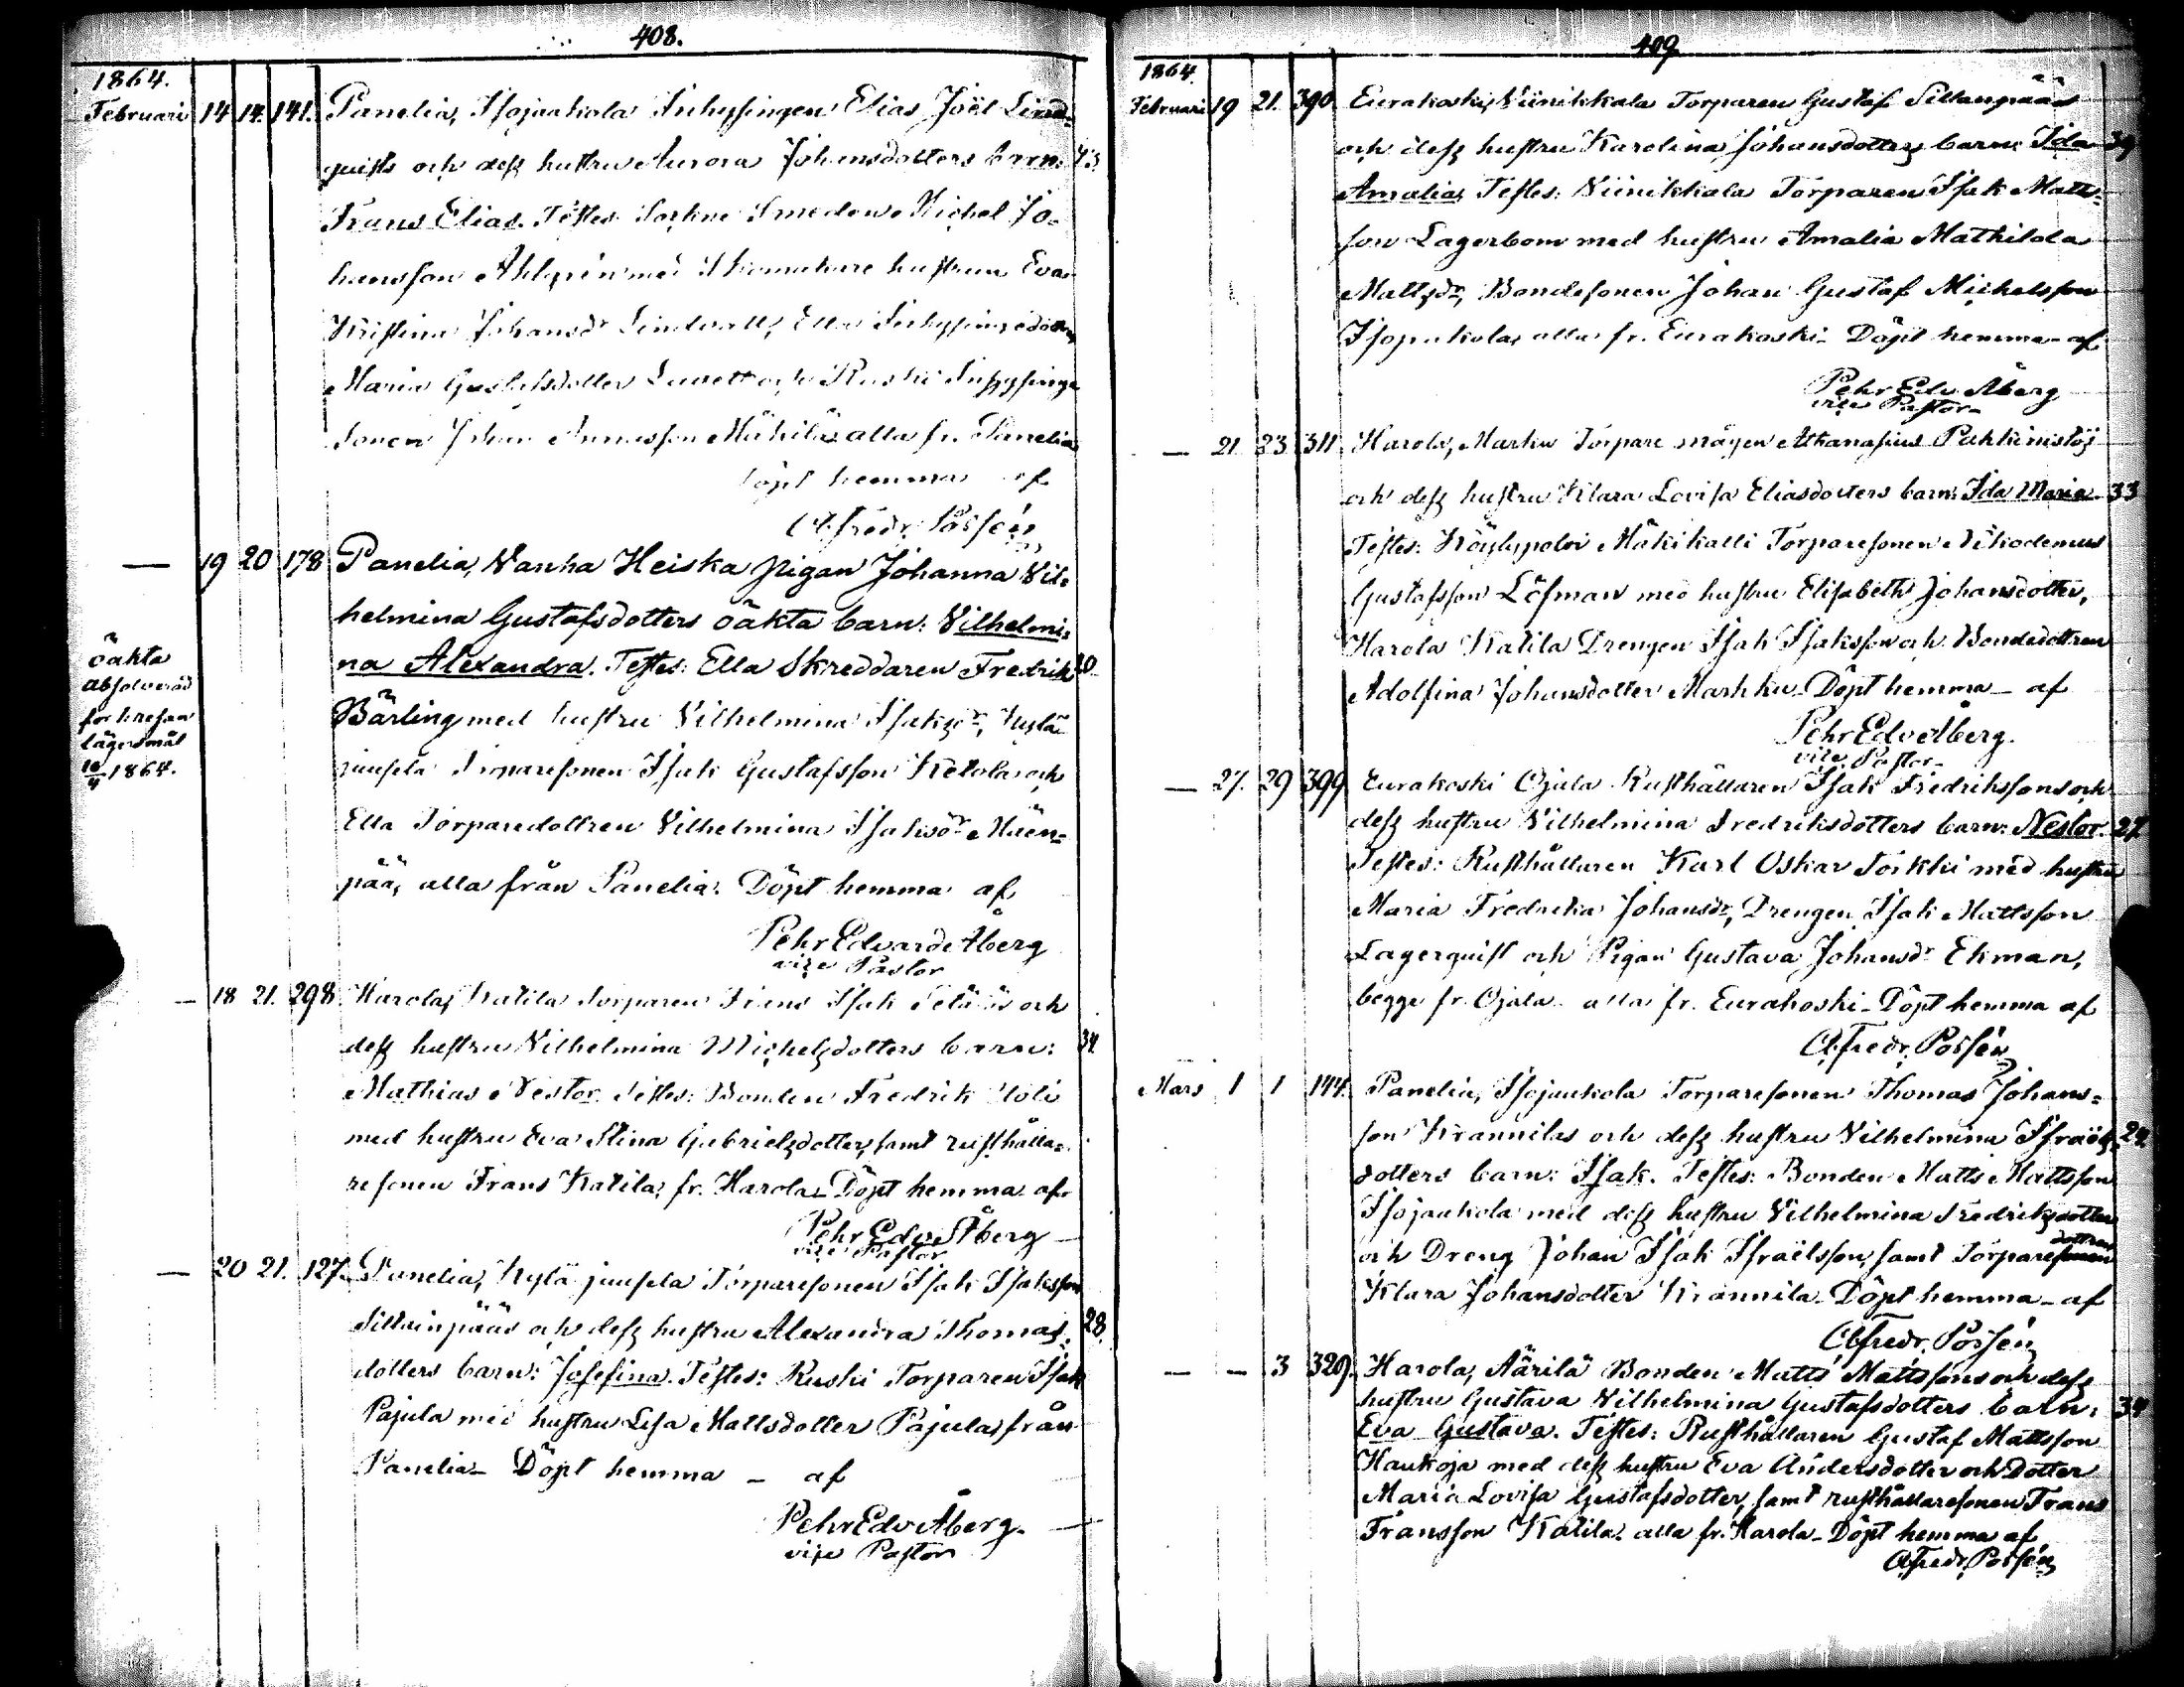 408.
1864.
Februari 14 14. 141. Panelia, Isojaakola Inhysingen Elias Joël Lind-
quists och dess hustru Aurora Johansdotters barn: 43.
Frans Elias. Testes: Sockne Smeden Michel Jo-
hansson Ahlgrén med Skomakare hustrun Eva
Kristina Johansdr Lindvall, Ella Inhysingedottren
Maria Gustafsdotter och Ruski Inhysinge
sonen Johan Mäkilä alla fr. Panelia
Döpt hemma af
A. Fredr. Possén
— 19 20 178 Panelia, Vanha Heiska pigan Johanna Vil-
helmina Gustafsdotters oäkta barn: Vilhelmi-
na Alexandra. Testes: Ella Skreddaren Fredrik 20
Bärling med hustru Vilhelmina Isaksdr, Kylä
juusela Torparesonen Isak Gustafsson Ketola och
Ella Torparedottren Vilhelmina Isaksdr Mäen-
pää, alla från Panelia. Döpt hemma af
Pehr Edvard Åberg
vice Pastor
oäkta
absolverad
för
lägersmål
10/4 1864.
— 18 21. 298. Harola, Katila Torparen Frans Isak och
dess hustru Vilhelmina Michelsdotters barn: 34.
Mathias Nestor. Testes: Bonden Fredrik Uoti
med hustru Eva Stina Gabrielsdotter, samt rusthålla-
resonen Frans Katila, fr. Harola. Döpt hemma af
Pehr Edv Åberg
vice Pastor
— 20 21. 127. Panelia, Kylä juusela Torparesonen Isak Isaksson
Siltainpääs och dess hustru Alexandra Thomas- 28.
dotters barn: Josefina. Testes: Ruski Torparen Isak
Pajula med hustru Lisa Mattsdotter Pajula, från
Panelia. Döpt hemma — af
Pehr Edv Åberg.
vice Pastor
409
1864.
Februari 19 21. 390. Eurakoski, Viinikkala Torparen Gustaf Siltanpääs
och dess hustru Karolina Johansdotters barn: Ida 39
Amalia, Testes: Viinikkala Torparen Isak Matts-
son Lagerbom med hustru Amalia Mathilda
Mattsdr, Bondesonen Johan Gustaf Michelsson
Isopukola, alla fr. Eurakoski. Döpt hemma af
Pehr Edv Åberg
vice Pastor
— 21. 23. 311. Harola, Markku Torpare mågen Athanasius Pahkimistös
och dess hustru Klara Lovisa Eliasdotters barn: Ida Maria 33
Testes: Köylypolvi Mäkikalli Torparesonen Nikodemus
Gustafsson Löfman med hustru Elisabeth Johansdotter,
Harola Katila Drengen Isak Isaksson och Bondedottren
Adolfina Johansdotter Markku. Döpt hemma af
Pehr Edv Åberg.
vice Pastor
— 27. 29 399 Eurakoski Ojala Rusthållaren Isak Fredrikssons och
dess hustru Vilhelmina Fredriksdotters barn: Nestor. 27.
Testes: Rusthållaren Karl Oskar Torkki med hustru
Maria Fredrika Johansdr, Drengen Isak Mattsson
Lagerquist och Pigan Gustava Johansdr Ekman,
begge fr. Ojala alla fr. Eurakoski. Döpt hemma af
A. Fredr. Possén
Mars 1 1 144. Panelia, Isojaakola Torparesonen Thomas Johans-
son Krannilas och dess hustru Vilhelmina Israëls- 24.
dotters barn: Isak. Testes: Bonden Matts Mattsson
Isojaakola med dess hustru Vilhelmina Fredriksdotter
och Dreng Johan Isak Israëlsson, samt Torparesonen dottren
Klara Johansdotter Krannila. Döpt hemma af
A. Fredr. Possén
— — 3 329. Harola, Äärilä Bonden Matts Mattssons och dess
hustru Gustava Vilhelmina Gustafsdotters barn: 34
Eva Gustava. Testes: Rusthållaren Gustaf Mattsson
Haukoja med dess hustru Eva Andersdotter och Dotter
Maria Lovisa Gustafsdotter, samt rusthållaresonen Frans
Fransson Katila. alla fr. Harola. Döpt hemma af
A. Fredr. Possén